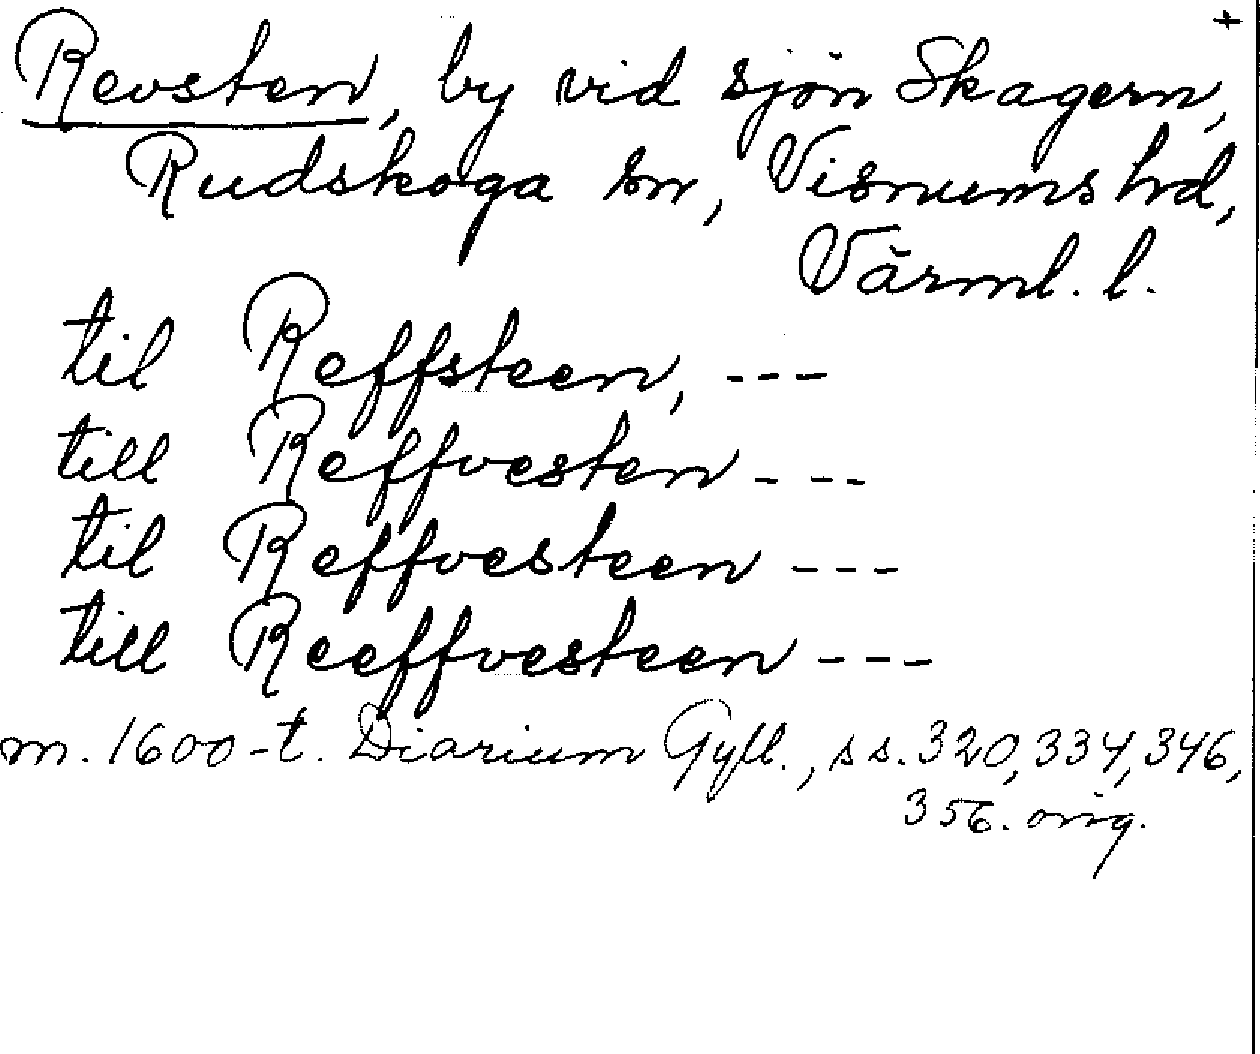 +
Revsten, by vid sjön Skagern,
Rudskoga sn, Visnums hd,
Värml. l.
til Reffsteen, ---
till Reffvesten ---
til Reffvesteen ---
till Reeffvesteen ---
m. 1600-t. Diarium Gyll., ss. 320, 334, 346,
356. orig.